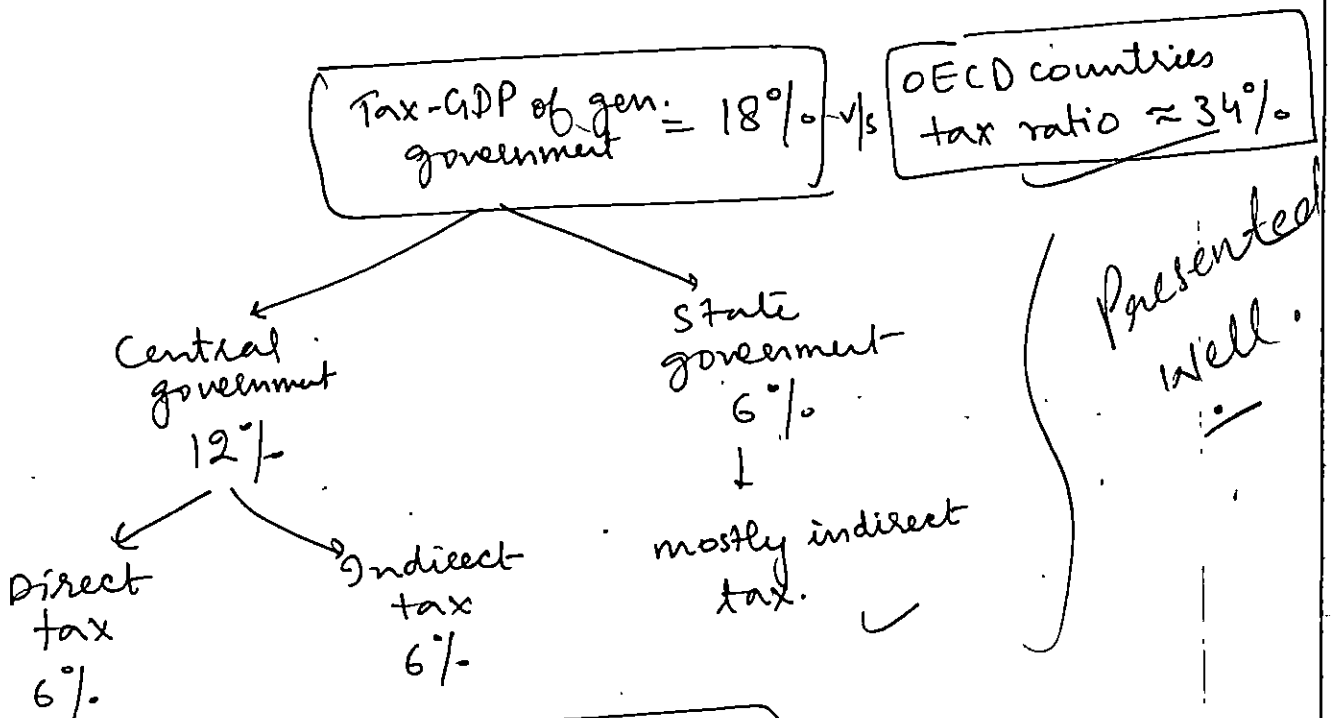 Tax-GDP of gen. government = 18% v/s
OECD countries
tax ratio ≈ 34%
Presented
well.
Central
government
12%
State
government
6%
mostly indirect
tax.
Direct
tax
6%
Indirect
tax
6%